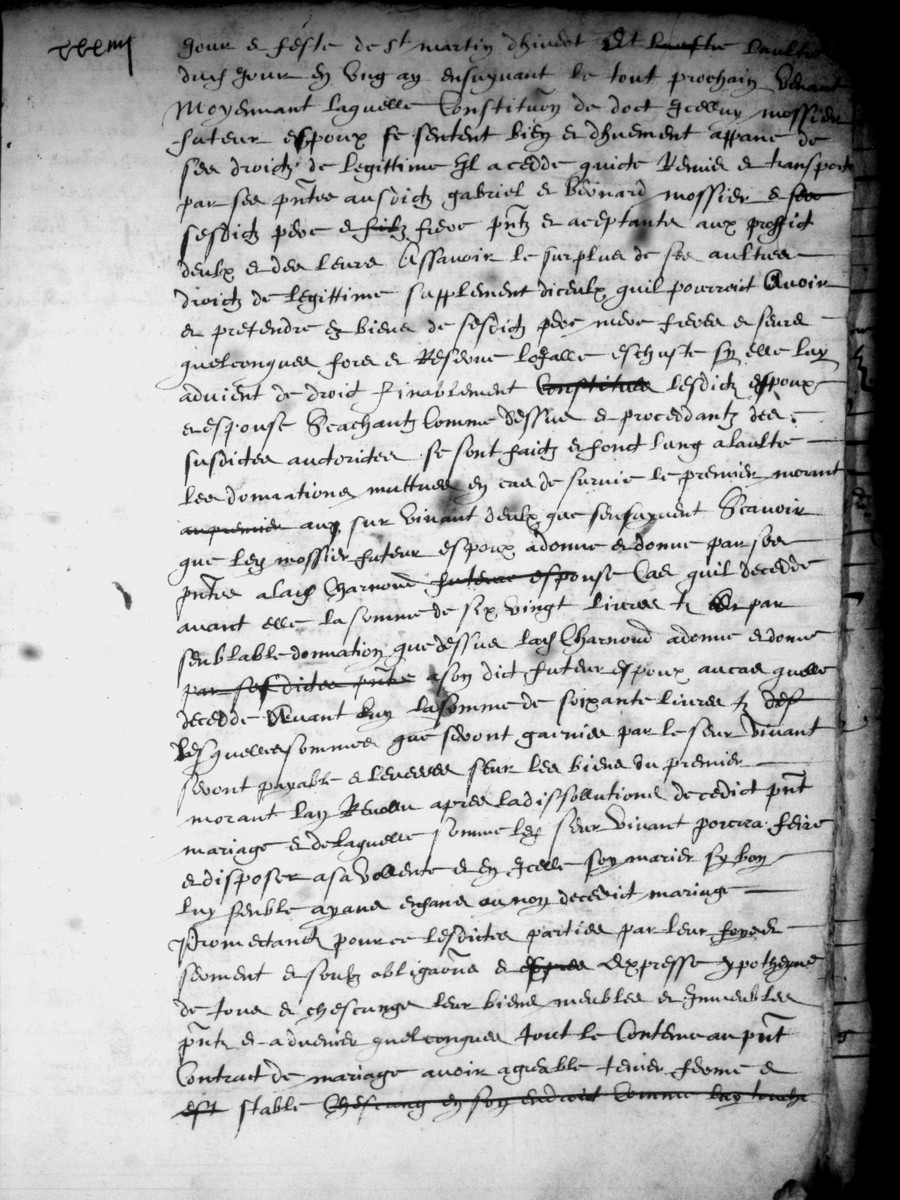 xxxiiij
jour & feste de st martin dhivert Et laultre
dud jour en ung an ensuyvant le tout prochain venant
Moyennant laquelle constituon de doct Icelluy mossier
futeur espoux se sentent bien & dhuement appane de
ses droictz de legittime Il a cedde quicte Remis & transporte
par ses pntes ausdictz gabriel & Bernard mossier & ses
sesdictz pere & filz frere pntz & aceptants aux proffict
deulx & des leurs Assavoir le surplus de ses aultres
droictz de legittime supplement diceulx quil pourroit Avoir
& pretendre es biens de sesdictz pere mere freres & seurs
quelconques fors & Reserve loyalle eschuste sy elle luy
advient de droict finablement constitues lesdictz espoux
& espouse Scachantz comme dessus & proceddantz des
susdictes auctorites se sont faictz & font lung a laulte
les donnations muttues en cas de survie le premier morant
au premier au survivant deulx que sensuyvent Scavoir
que led mossier futeur espoux a donne & donne par ses
pntes a lad Charnoud future espouse cas quil decedde
avant elle la somme de six vingt livres tz & par
semblable donnation que dessus lad Charnoud a donne & donne
par ses dictes pntes a son dict futeur espoux au cas quelle
decedde Avant luy la somme de soixante livres tz
lesquelles sommes que seront gaignies par le seur vivant
seront payable & levees seur les biens du premier
morant lan Revollu apres la dissollutions de cedict pnt
mariage & de laquelle somme led seur vivant porra feire
& disposer a sa vollente & en Icelle soy marier sy bon
luy semble ayans enfans ou non de cedict mariage
Promectantz pour ce lesdictes parties par leur foys &
serment & soubz obligaons & expres expresse ypotheque
de tous & chescungs leur biens meubles & Inmeubles
pntz & advenir quelconques tout le contenu au pnt
Contract de mariage avoir agreable tenir ferme &
est stable Chescung en son endroict comme luy touche